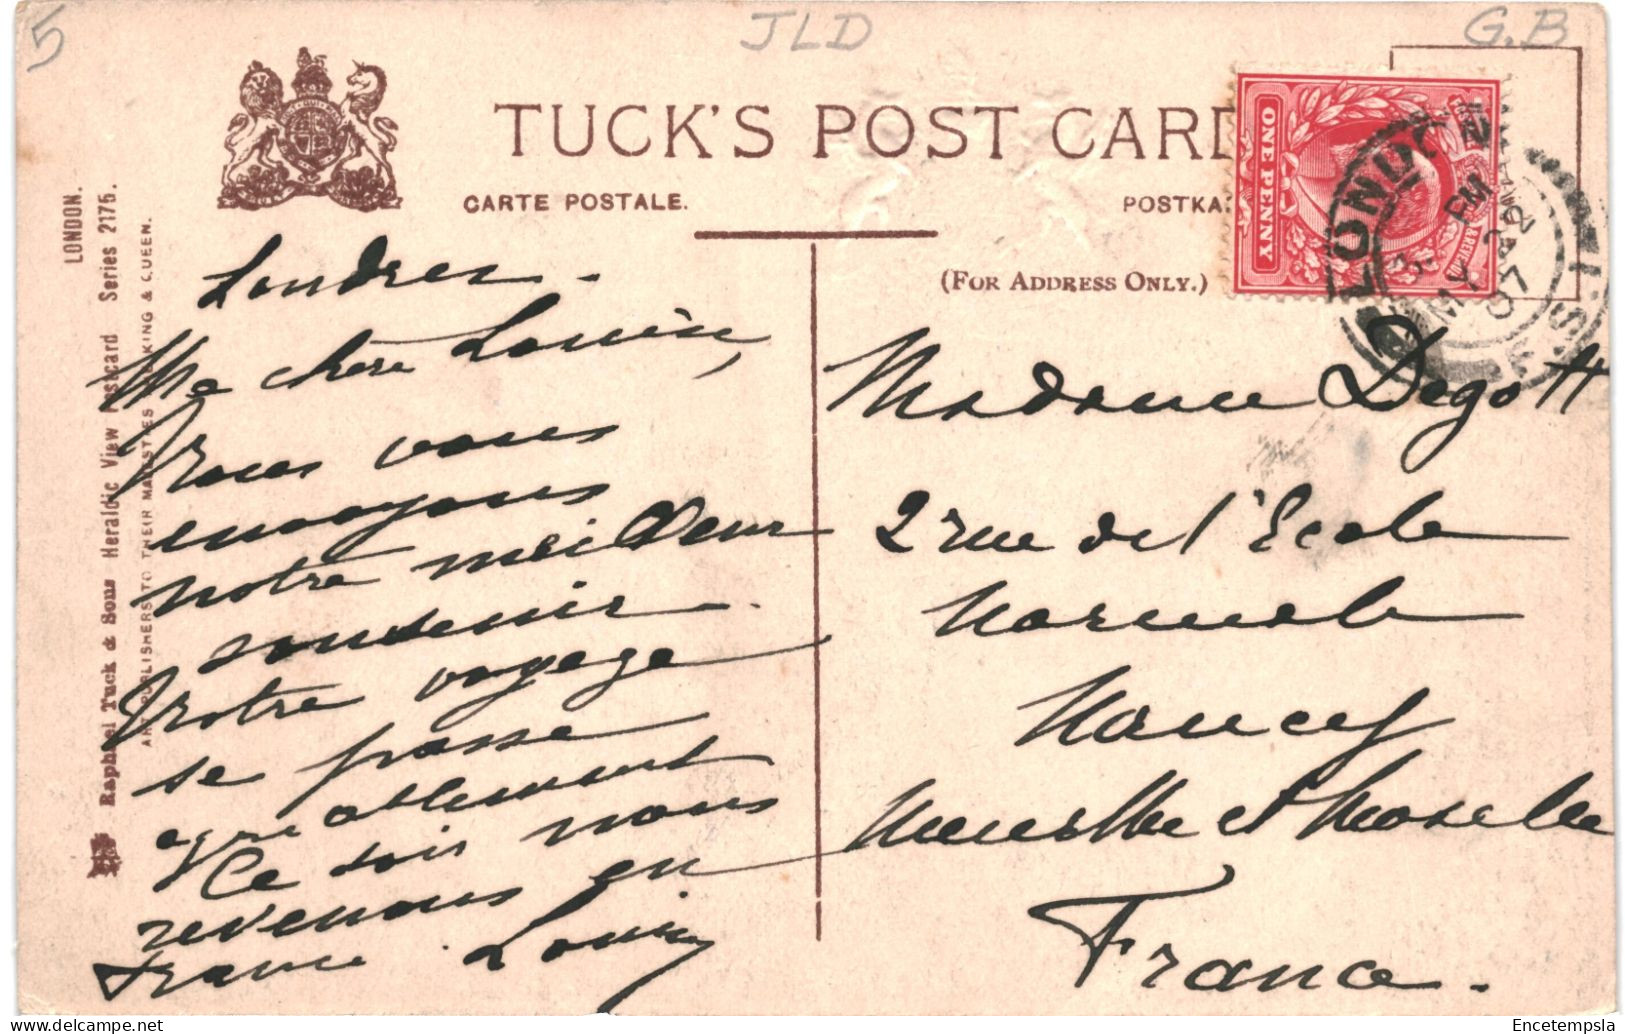 5
JLD
G.B
TUCK'S POST CARD
CARTE POSTALE.
POSTKA
(FOR ADDRESS ONLY.)
LONDON.
Raphael Tuck & Sons Heraldic View Postcard Series 2175.
ART PUBLISHERS TO THEIR MAJESTIES KING & QUEEN.
ONE PENNY
LONDON
PM
MY 28
07
Londres.
Ma chère Louise,
Nous vous
envoyons
notre meilleur
souvenir.
Notre voyage
se passe
agréablement
Ce soir nous
revenons en
France. Louis
Madame Degott
2 rue de l'Ecole
Normale
Nancy
Meurthe et Moselle
France.
Encetempsla